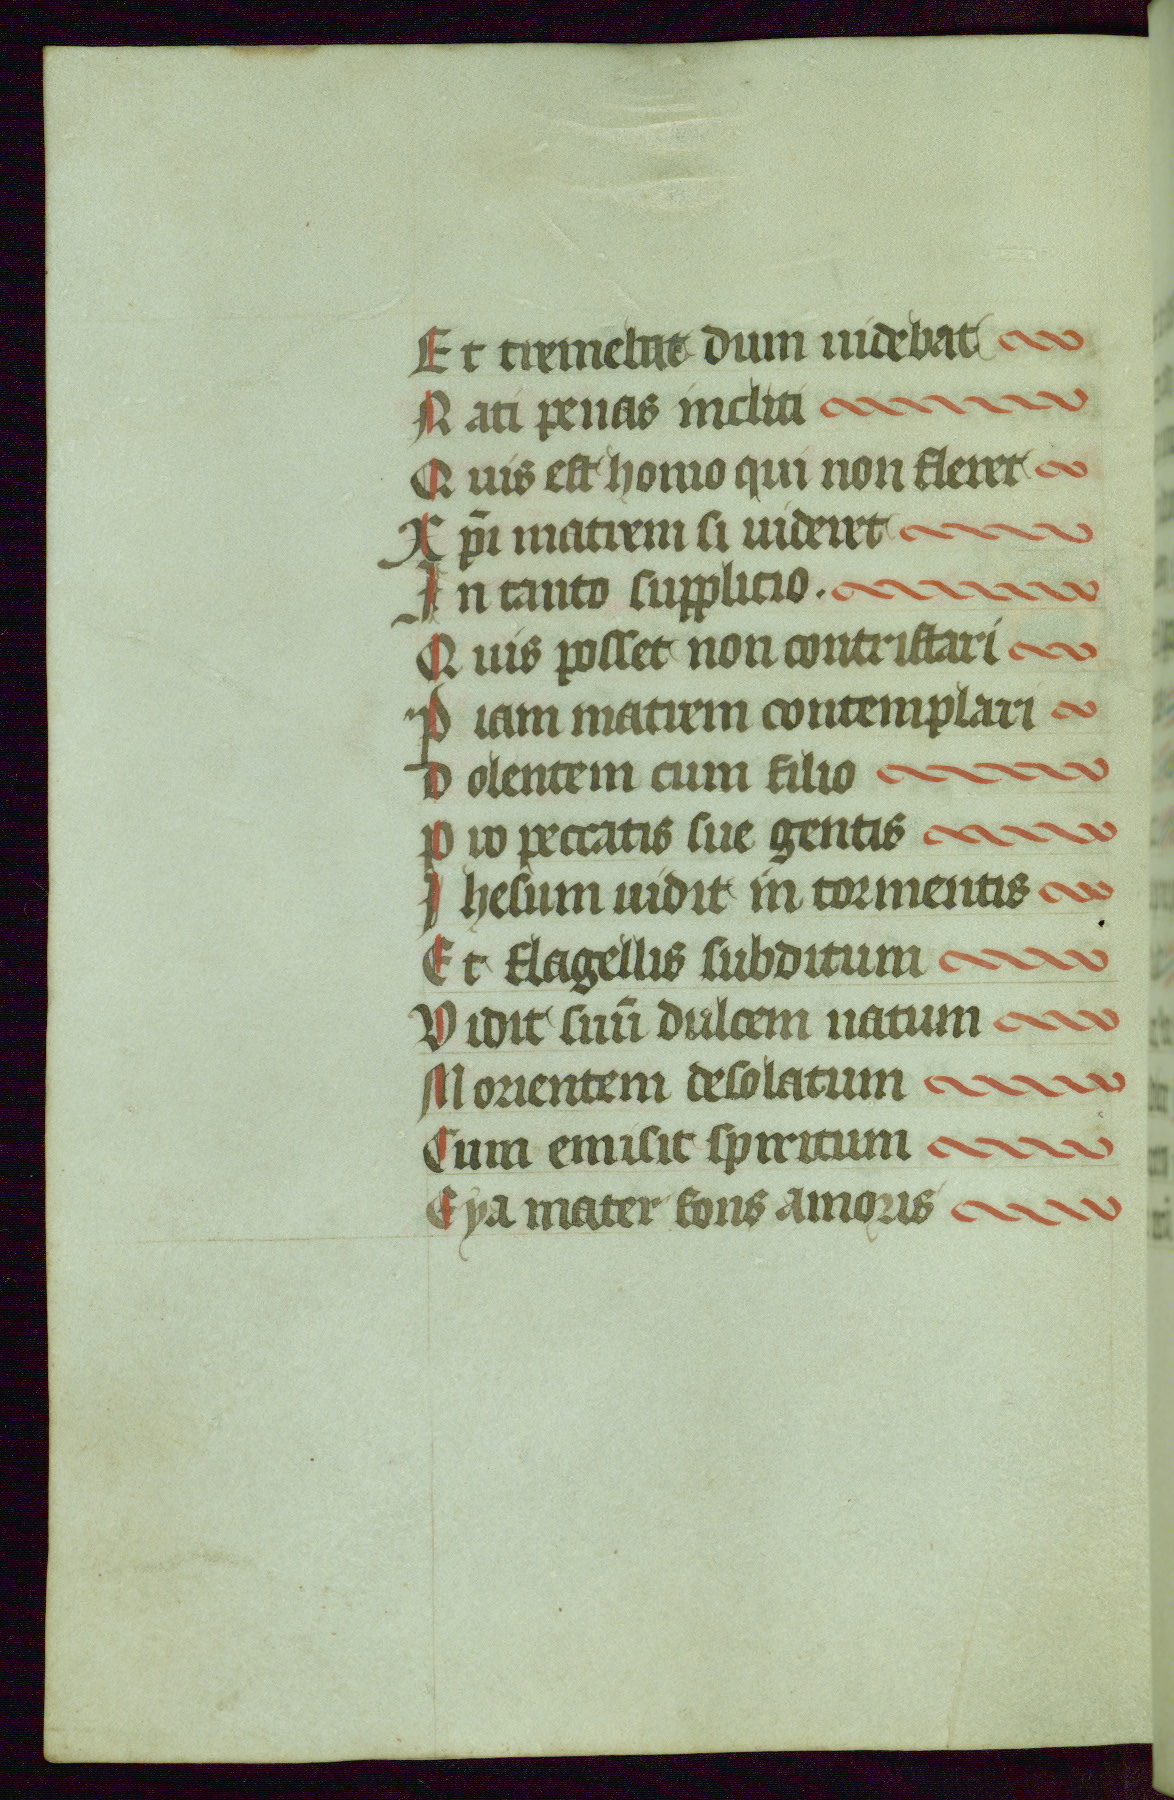 Et tremebat dum uidebat
Nati penas incliti
Quis est homo qui non fleret
Xp̄i matrem si uideret
In tanto supplicio.
Quis posset non contristari
Piam matrem contemplari
Dolentem cum filio
Pro peccatis sue gentis
Ihesum uidit in tormentis
Et flagellis subditum
Vidit suū dulcem natum
Morientem desolatum
Cum emisit spiritum
Eya mater fons amoris